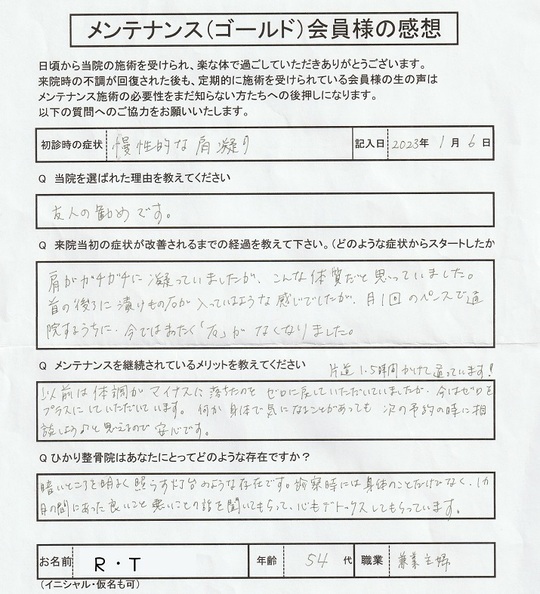 メンテナンス(ゴールド)会員様の感想
日頃から当院の施術を受けられ、楽な体で過ごしていただきありがとうございます。
来院時の不調が回復された後も、定期的に施術を受けられている会員様の生の声は
メンテナンス施術の必要性をまだ知らない方たちへの後押しになります。
以下の質問へのご協力をお願いいたします。
初診時の症状 慢性的な肩凝り 記入日 2023年 1月 6日
Q 当院を選ばれた理由を教えてください
友人の勧めです。
Q 来院当初の症状が改善されるまでの経過を教えて下さい。(どのような症状からスタートしたか
肩がガチガチに凝っていましたが、こんな体質だと思っていました。
首の後ろに漬けもの石が入っているような感じでしたが、月1回のペースで通
院するうちに、今ではまったく「石」がなくなりました。
Q メンテナンスを継続されているメリットを教えてください 片道1.5時間かけて通っています!
以前は体調がマイナスに落ちたのをゼロに戻していただいていましたが、今はゼロを
プラスにしていただいています。何か身体で気になることがあっても次の予約の時に相
談しようと思えるので安心です。
Q ひかり整骨院はあなたにとってどのような存在ですか?
暗いところを明るく照らす灯台のような存在です。診察時には身体のことだけでなく、1か
月の間にあった良いこと悪いことの話を聞いてもらって、心もデトックスしてもらっています。
お名前 R・T 年齢 54代 職業 兼業主婦
(イニシャル・仮名も可)